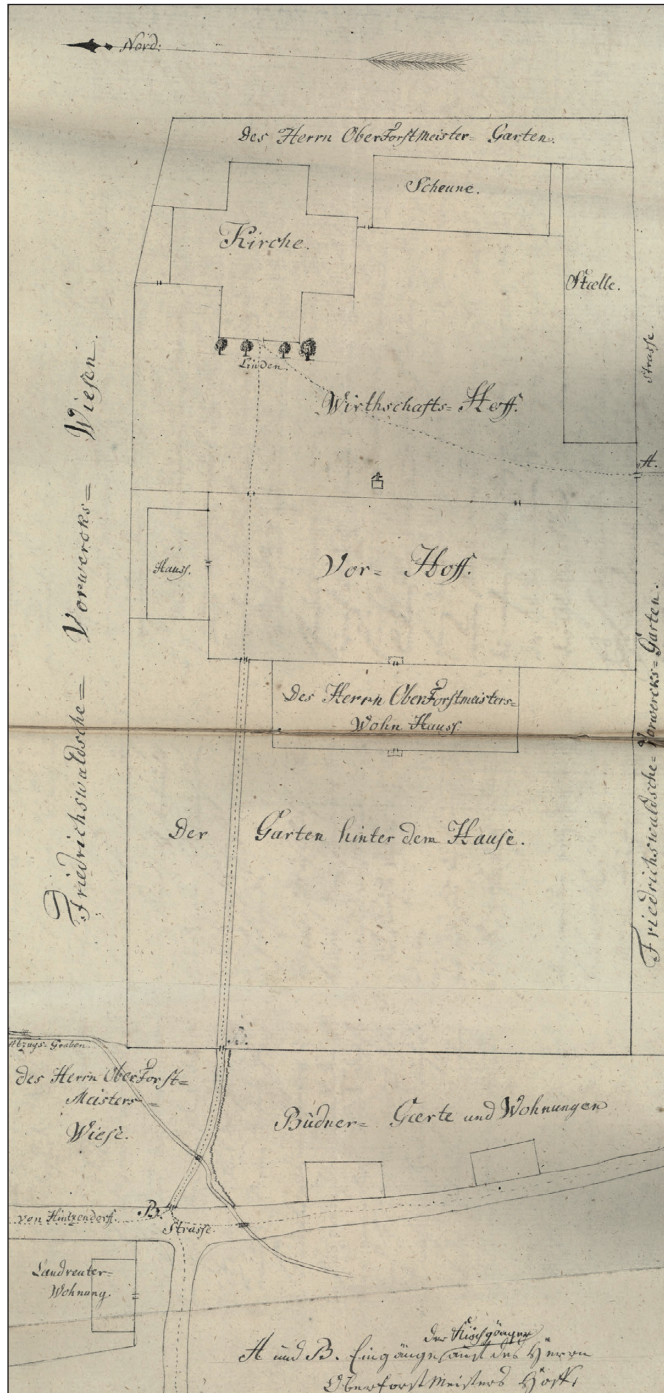 Nord:
Des Herrn OberForstmeister= Garten.
Scheune.
Kirche.
Stælle.
Strasse.
Linden.
Wirthschafts= Hoff.
A.
Hauss.
Vor= Hoff.
Friedrichswaldsche= Vorwercks= Wiesen.
Des Herrn OberForstmeisters=
Wohn Hauss.
Der Garten hinter dem Hause.
Friedrichswaldsche= Vorwercks= Garten.
Abzugs=Graben.
des Herrn OberForst=
Meisters=
Wiese.
Büdner= Gærte und Wohnungen
B.
von Hintzendorff.
Strasse.
Landreuter=
Wohnung.
der Kirchgänger
A und B. Eingänge auf des Herrn
Oberforstmeisters Hoff.